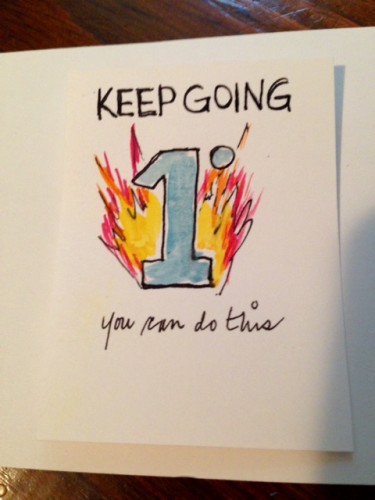 KEEP GOING
1°
you can do this